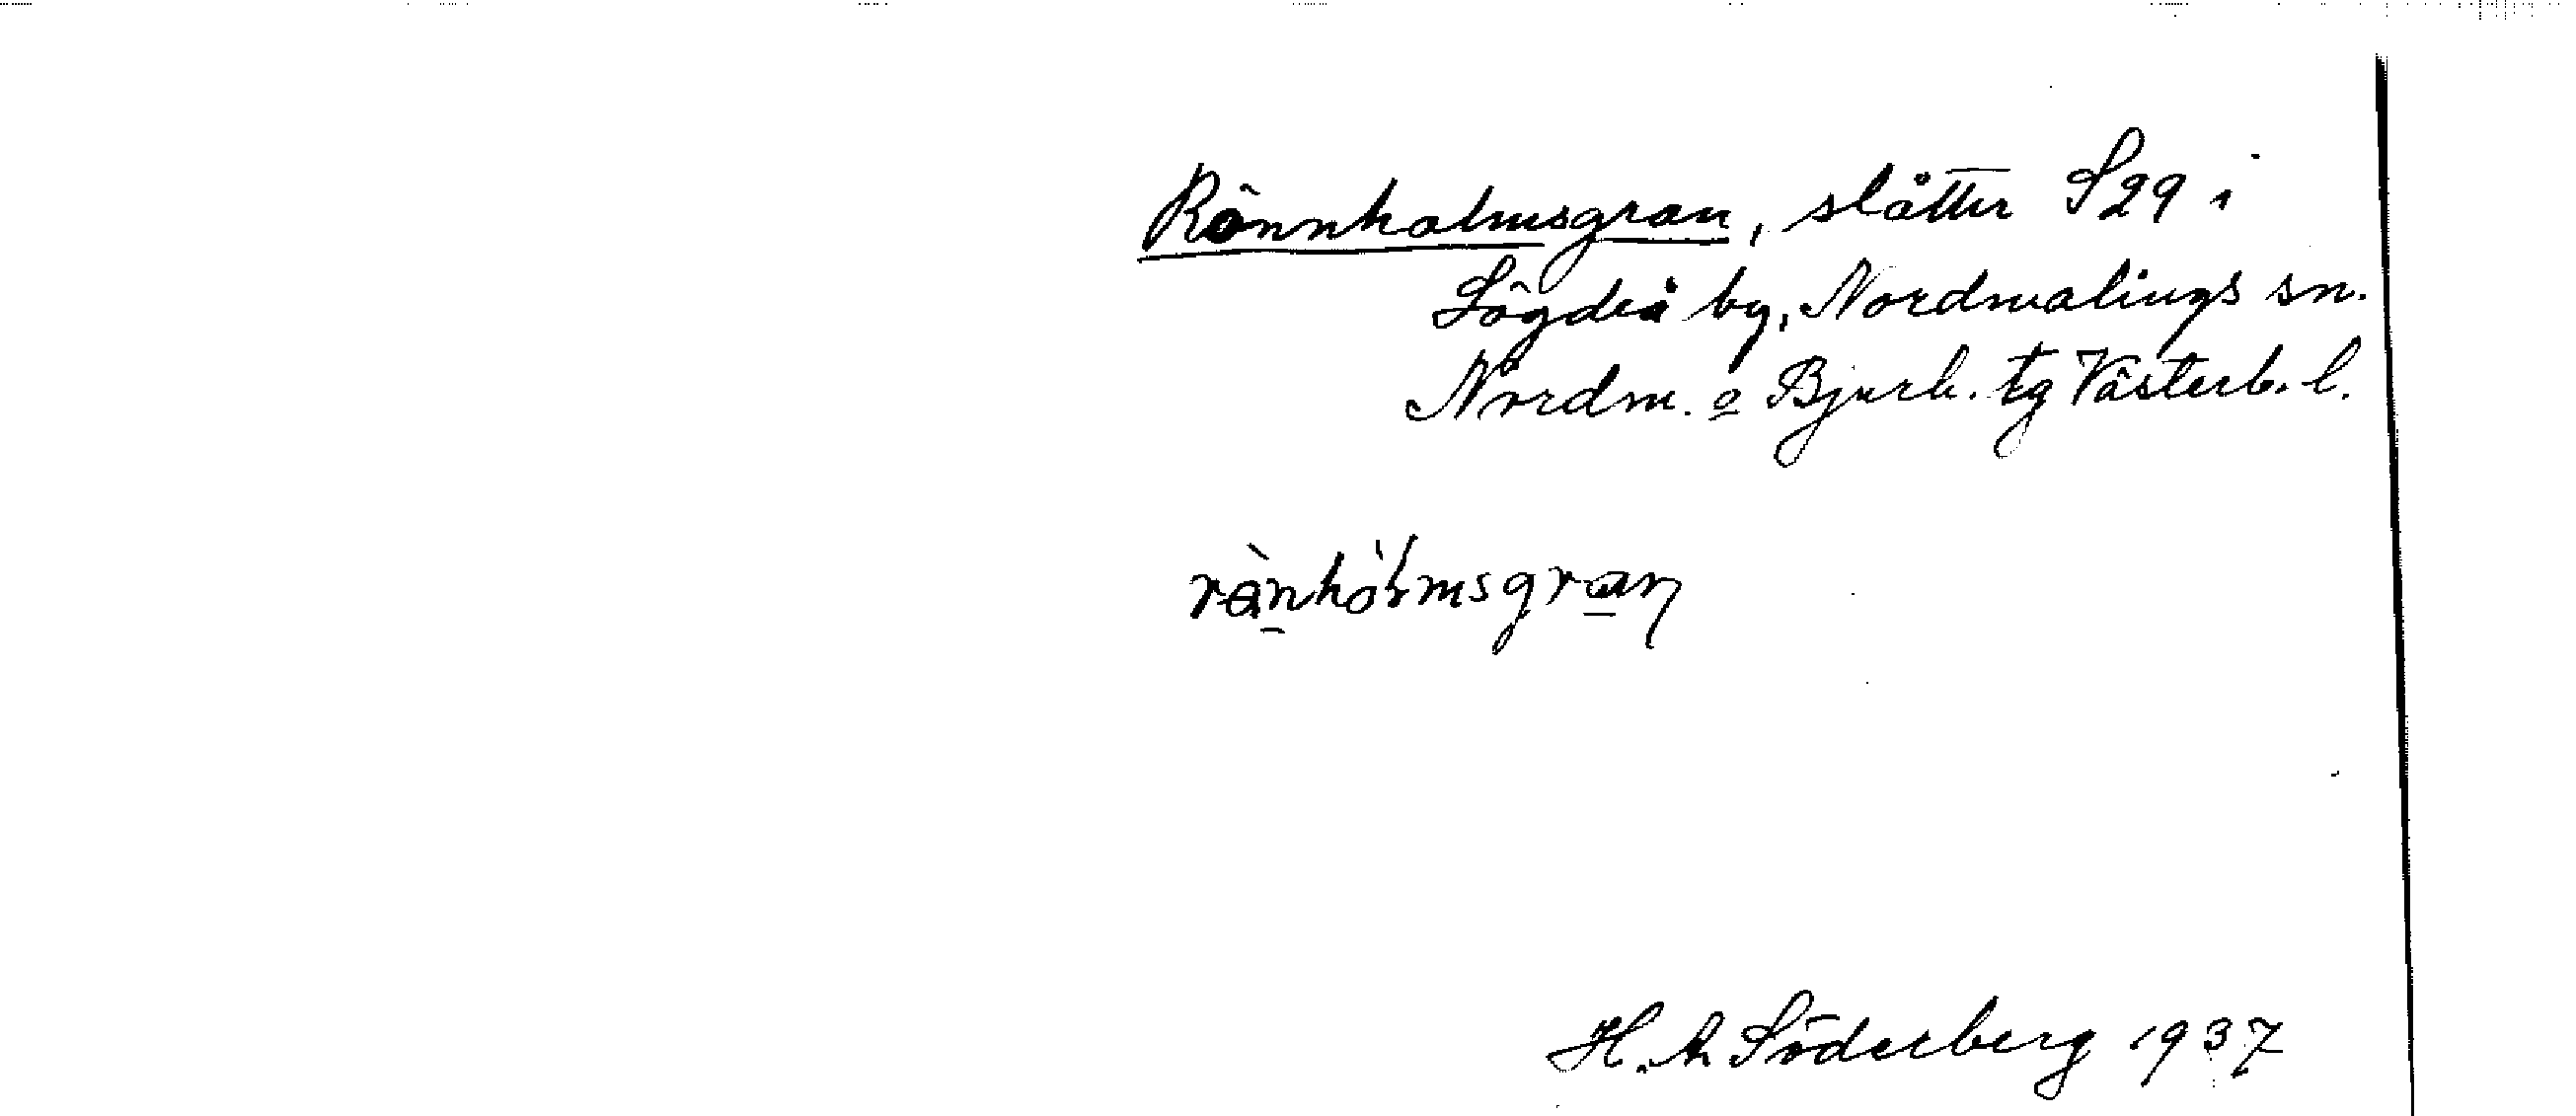 Rönnholmsgran, slåtter S29 i
Lögdeå by, Nordmalings sn.
Nordm. o Bjurh. tg Västerb. l.
rànhòlmsgran
H. A Söderberg 1937